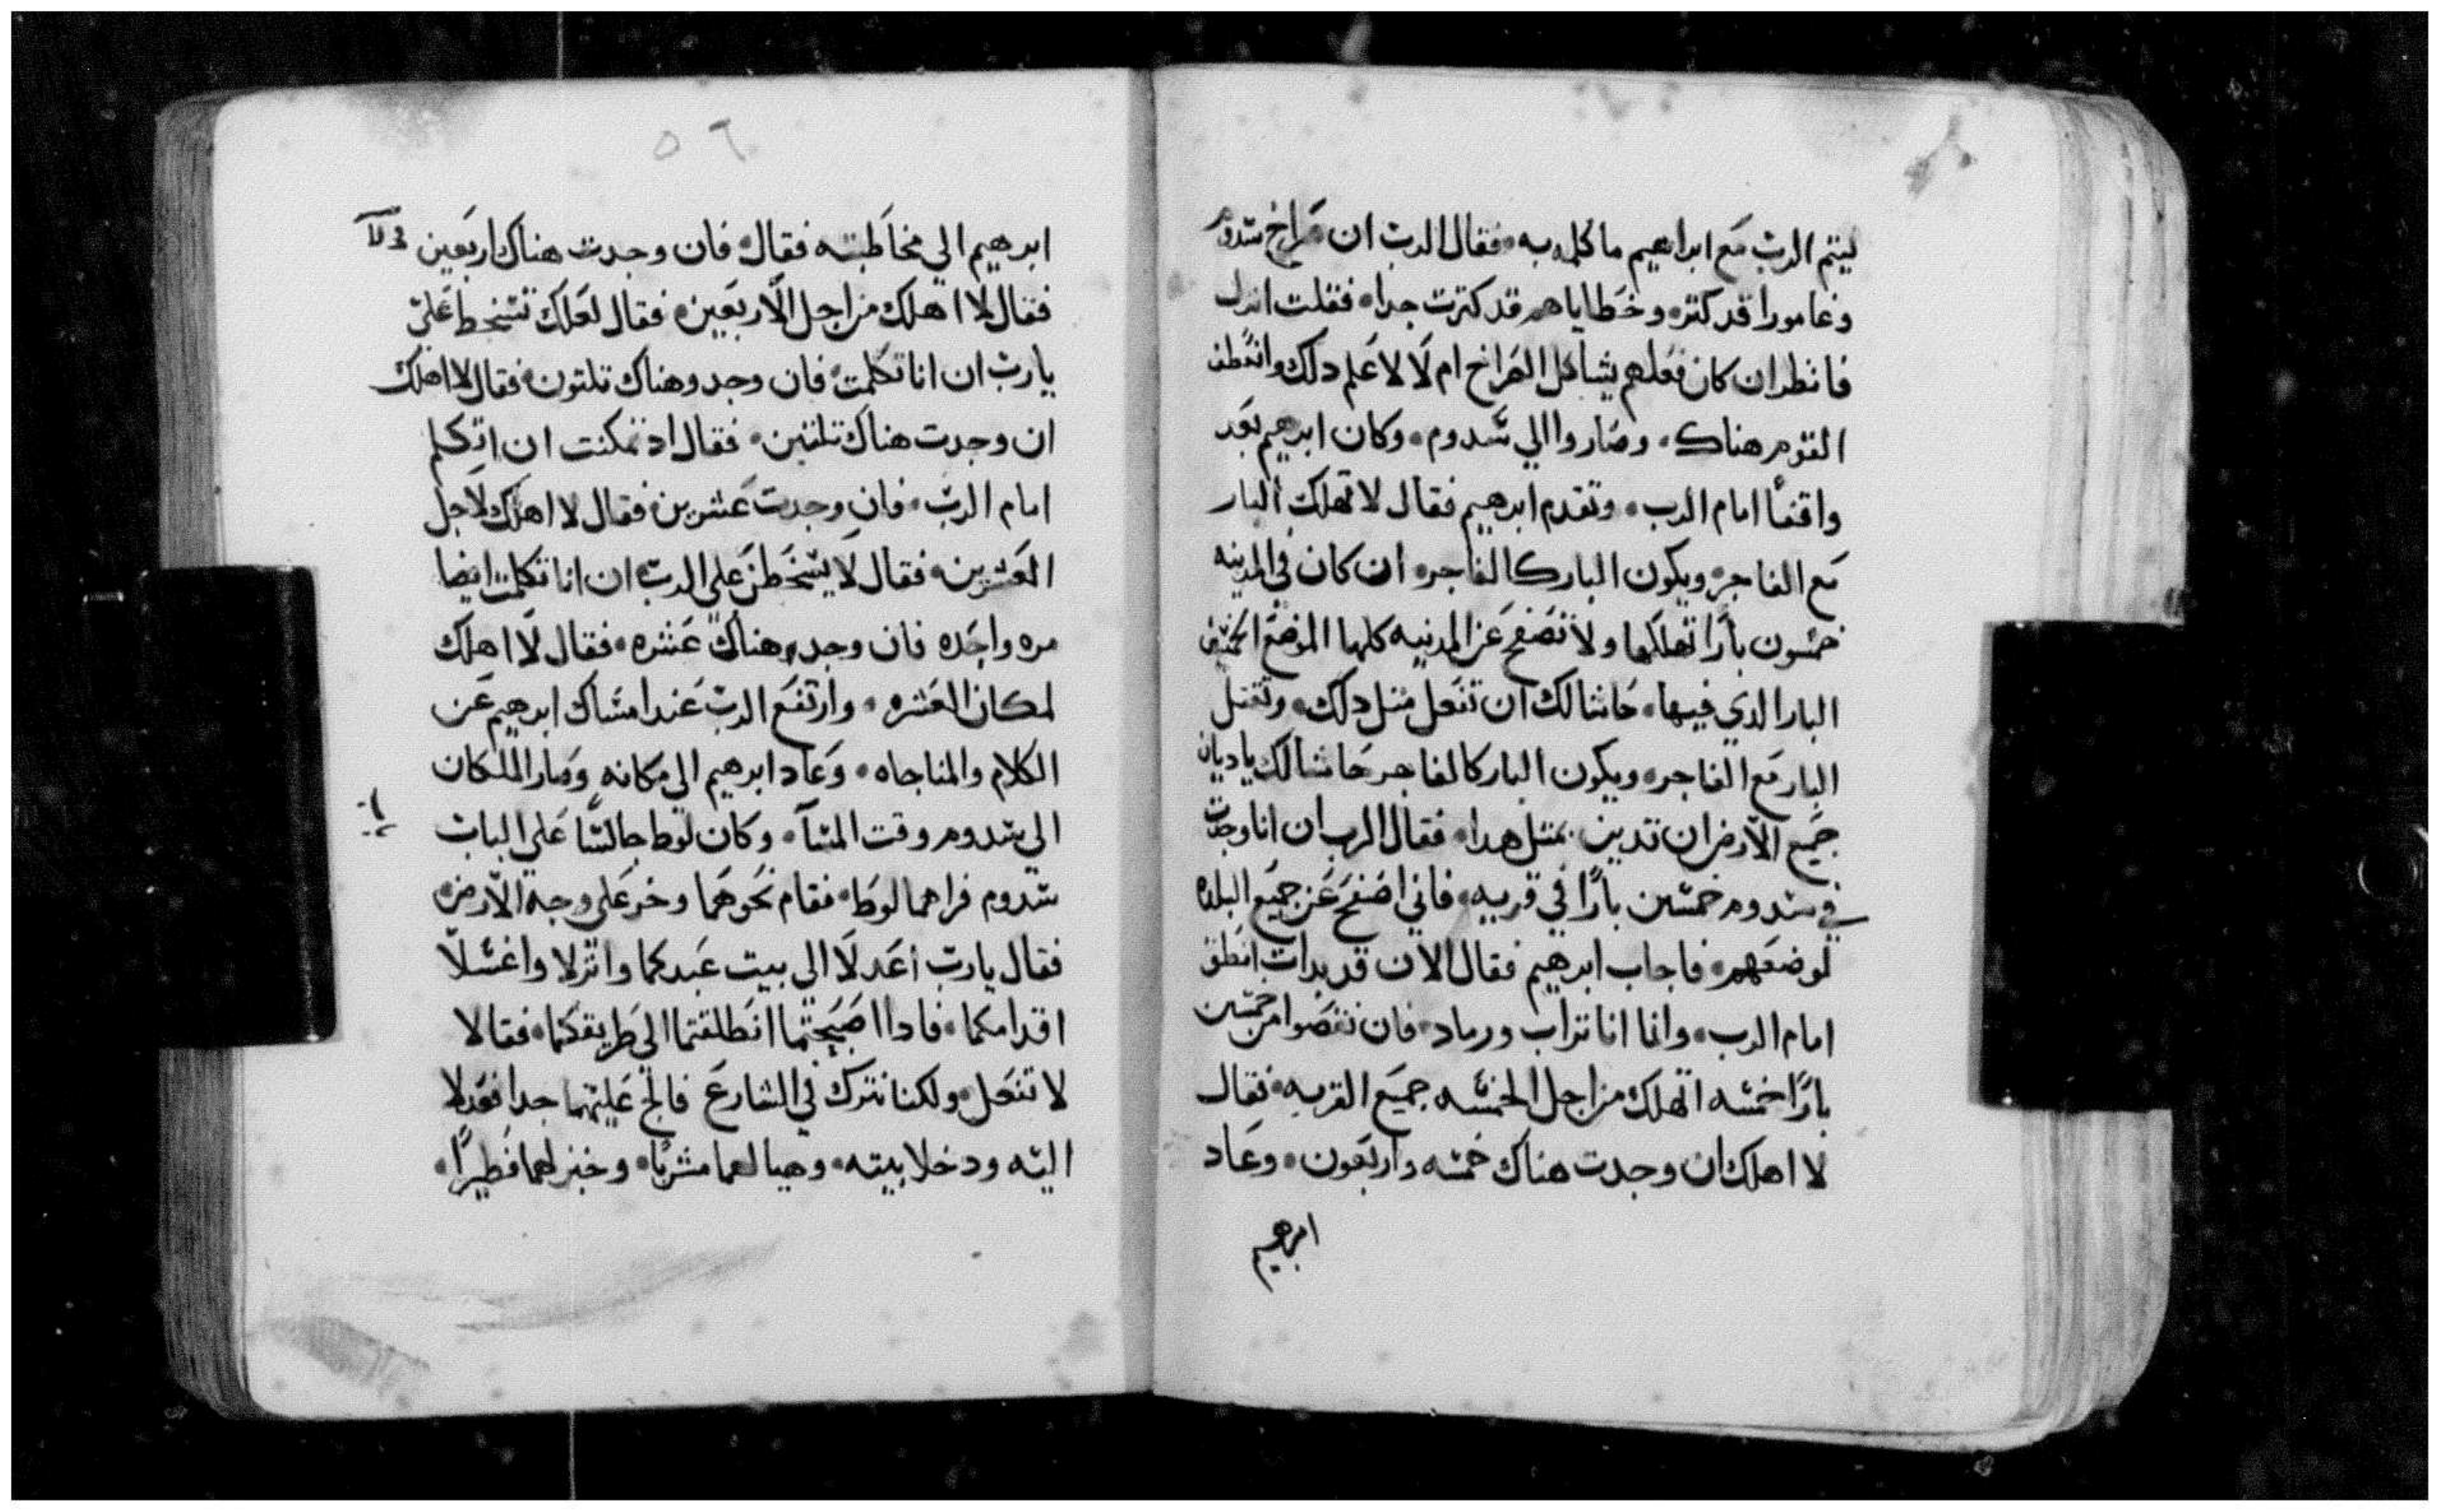 ليتم الرب مع ابراهيم ما كلمه به فقال الرب ان صراخ سدوم
وغامورا قد كتر وخطاياهم قد كترت جدا فقلت انزل
فانظر ان كان فعلهم يشاكل الصراخ ام لا لاعلم دلك وانطلق
القوم هناك وصاروا الي سدوم وكان ابرهيم بعد
واقفا امام الرب وتقدم ابرهيم فقال لا تهلك البار
مع الفاجر ويكون البار كالفاجر ان كان في المدينه
خمسون بارا تهلكها ولا تصفح عن المدينه كلها الموضع الخمسين
البار الدي فيها حاشا لك ان تفعل متل دلك وتقتل
البار مع الفاجر ويكون البار كالفاجر حاشا لك ياديان
جميع الارض ان تدين بمتل هدا فقال الرب ان انا وجدت
في سدوم خمسين بارا في قريه فاني اصفح عن جميع البلده
لموضعهم فاجاب ابرهيم فقال الان قد بدات انطق
امام الرب وانما انا تراب ورماد فان نقصوا من خمسين
بارا خمسه اتهلك من اجل الخمسه جميع القريه فقال
لا اهلك ان وجدت هناك خمسه واربعون وعاد
ابرهيم
٥٦
ابرهيم الي مخاطبته فقال فان وجدت هناك اربعين
فقال لا اهلك من اجل الاربعين فقال لعلك تسخط علي
يارب ان انا تكلمت فان وجد وهناك تلتون فقال لا اهلك
ان وجدت هناك تلتين فقال اد تمكنت ان اتكلم
امام الرب فان وجدت عشرين فقال لا اهلك لاجل
العشرين فقال لا يسخطن علي الرب ان انا تكلمت ايضا
مره واحده فان وجد هناك عشره فقال لا اهلك
لمكان العشره وارتفع الرب عند امساك ابرهيم عن
الكلام والمناجاه وعاد ابرهيم الي مكانه وصار الملكان
الي سدوم وقت المسآ وكان لوط جالسا علي الباب
سدوم فراهما لوط فقام نحوهما وخر علي وجه الارض
فقال يارب اعدلا الي بيت عبدكما وانزلا واغسلا
اقدامكما فادا اصبحتما انطلقتما الي طريقكما فقالا
لا تفعل ولكنا نترك في الشارع فالح عليهما جدا فعدلا
اليه ودخلا بيته وهيا لهما مشربا وخبز لهما فطيرا